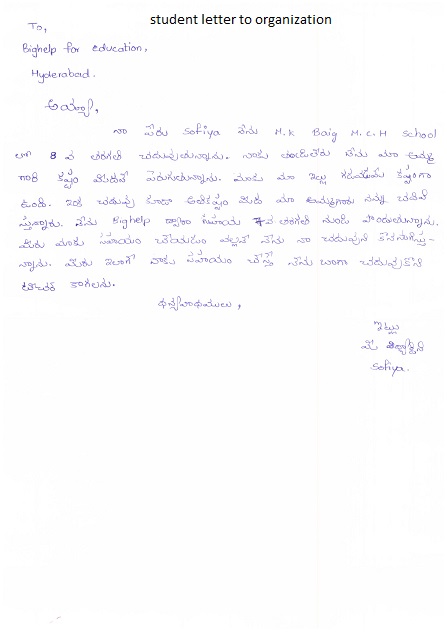 student letter to organization
To,
Bighelp for education,
Hyderabad.
అమ్మా,
నా పేరు sofiya నేను M.K Baig M.C.H School
లో 8 వ తరగతి చదువుతున్నాను. నాకు తండ్రిలేరు నేను మా అమ్మ
గారి కష్టం మీదనే పెరుగుతున్నాను. మాకు మా ఇల్లు గడవడమే కష్టంగా
ఉంది. ఇక చదువు కూడా అతికష్టం మీద మా అమ్మగారు నన్ను చదివి
స్తున్నారు. నేను Bighelp ద్వారా సహాయ 7వ తరగతి నుండి పొందుతున్నాను.
మీరు మాకు సహాయం చేయడం వల్లనే నేను నా చదువుని కొనసాగిస్తు-
న్నాను. మీరు ఇలాగే నాకు సహాయం చేస్తే నేను బాగా చదువుకొని
టీచర్ కాగలను.
ధన్యవాదములు,
ఇట్లు
మీ విద్యార్థిని
Sofiya.